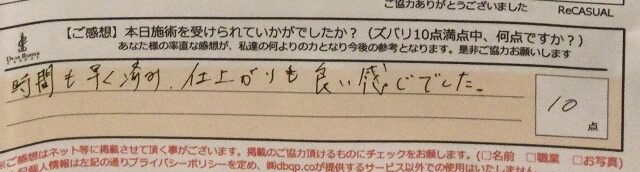 ご協力ありがとうございました
ReCASUAL
【ご感想】本日施術を受けられていかがでしたか?（ズバリ10点満点中、何点ですか?）
あなた様の率直な感想が、私達の何よりの力となり今後の参考となります。是非ご協力お願いします
時間も早く済み、仕上がりも良い感じでした。
10
点
※ご感想はネット等に掲載させて頂く事がございます。掲載のご協力頂けるものにチェックをお願します。(□名前 □職業 □お写真)
個人情報は左記の通りプライバシーポリシーを定め、㈱dbqp.coが提供するサービス以外での使用はいたしません